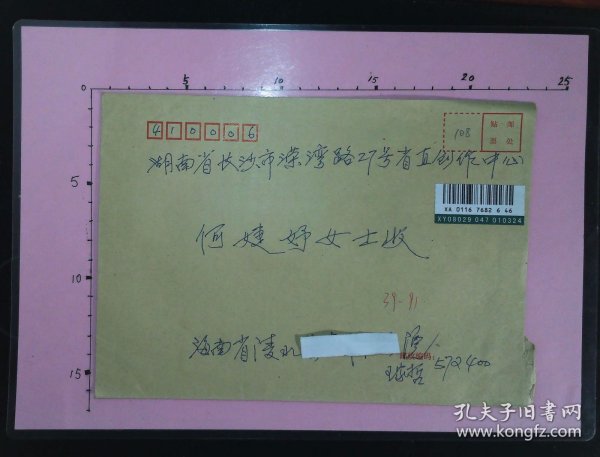 0 5 10 15 20 25
5
10
15
410006
108
贴邮
票处
湖南省长沙市溁湾路27号省直创作中心
XA 0116 7682 6 46
XY08029 047 010324
何婕妤女士收
39-91
海南省陵水
邮政编码:
572400
孔夫子旧书网
www.kongfz.com